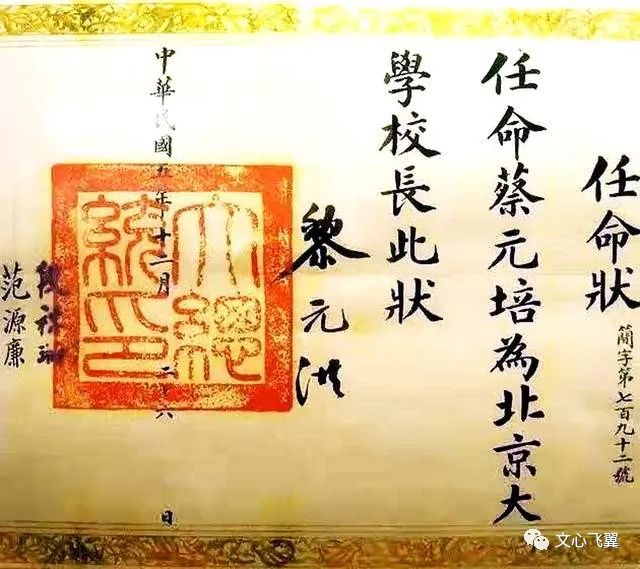 任命狀
簡字第七百九十二號
任命蔡元培為北京大
學校長此狀
黎元洪
大總
統印
中華民國五年十二月二十六日
段祺瑞
范源廉
文心飞翼